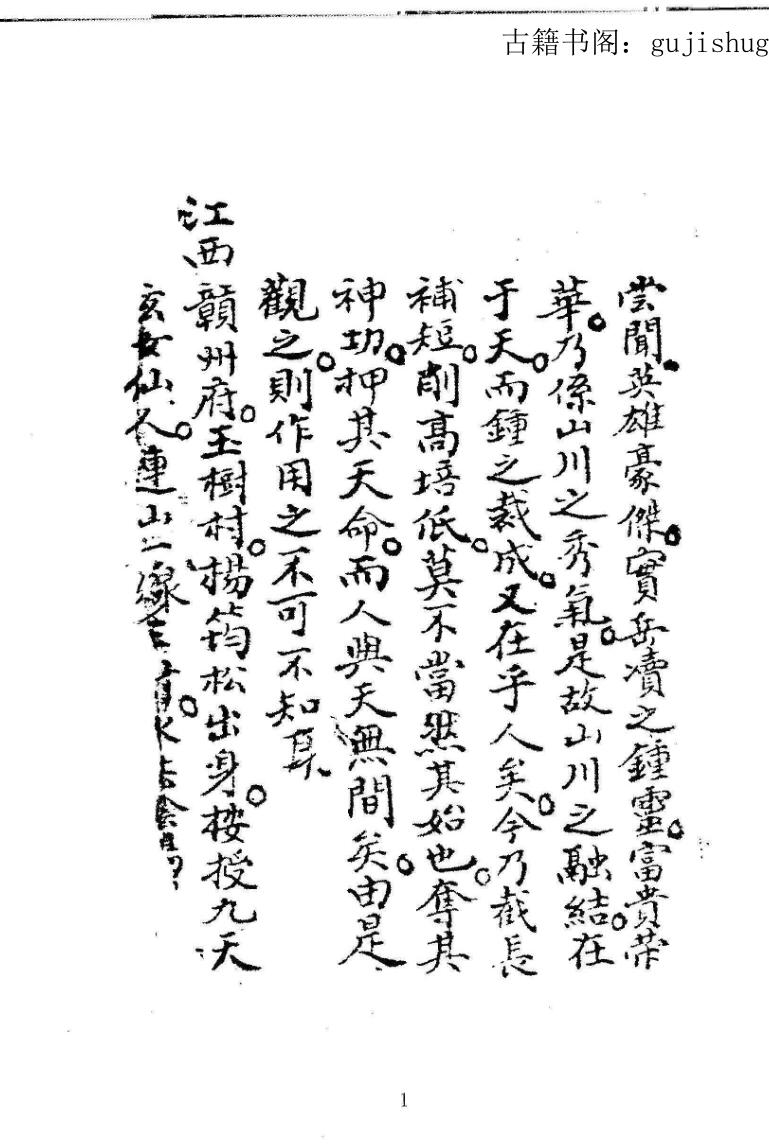 古籍书阁：gujishug
尝聞英雄豪傑實岳瀆之鍾靈富貴荣
華乃係山川之秀氣是故山川之融結在
于天而鍾之裁成又在乎人矣今乃截長
補短削高培低莫不當然其始也奪其
神功押其天命而人與天無間矣由是
觀之則作用之不可不知耳
江西贛州府玉樹村楊筠松出身接授九天
玄女仙人連山二線
1